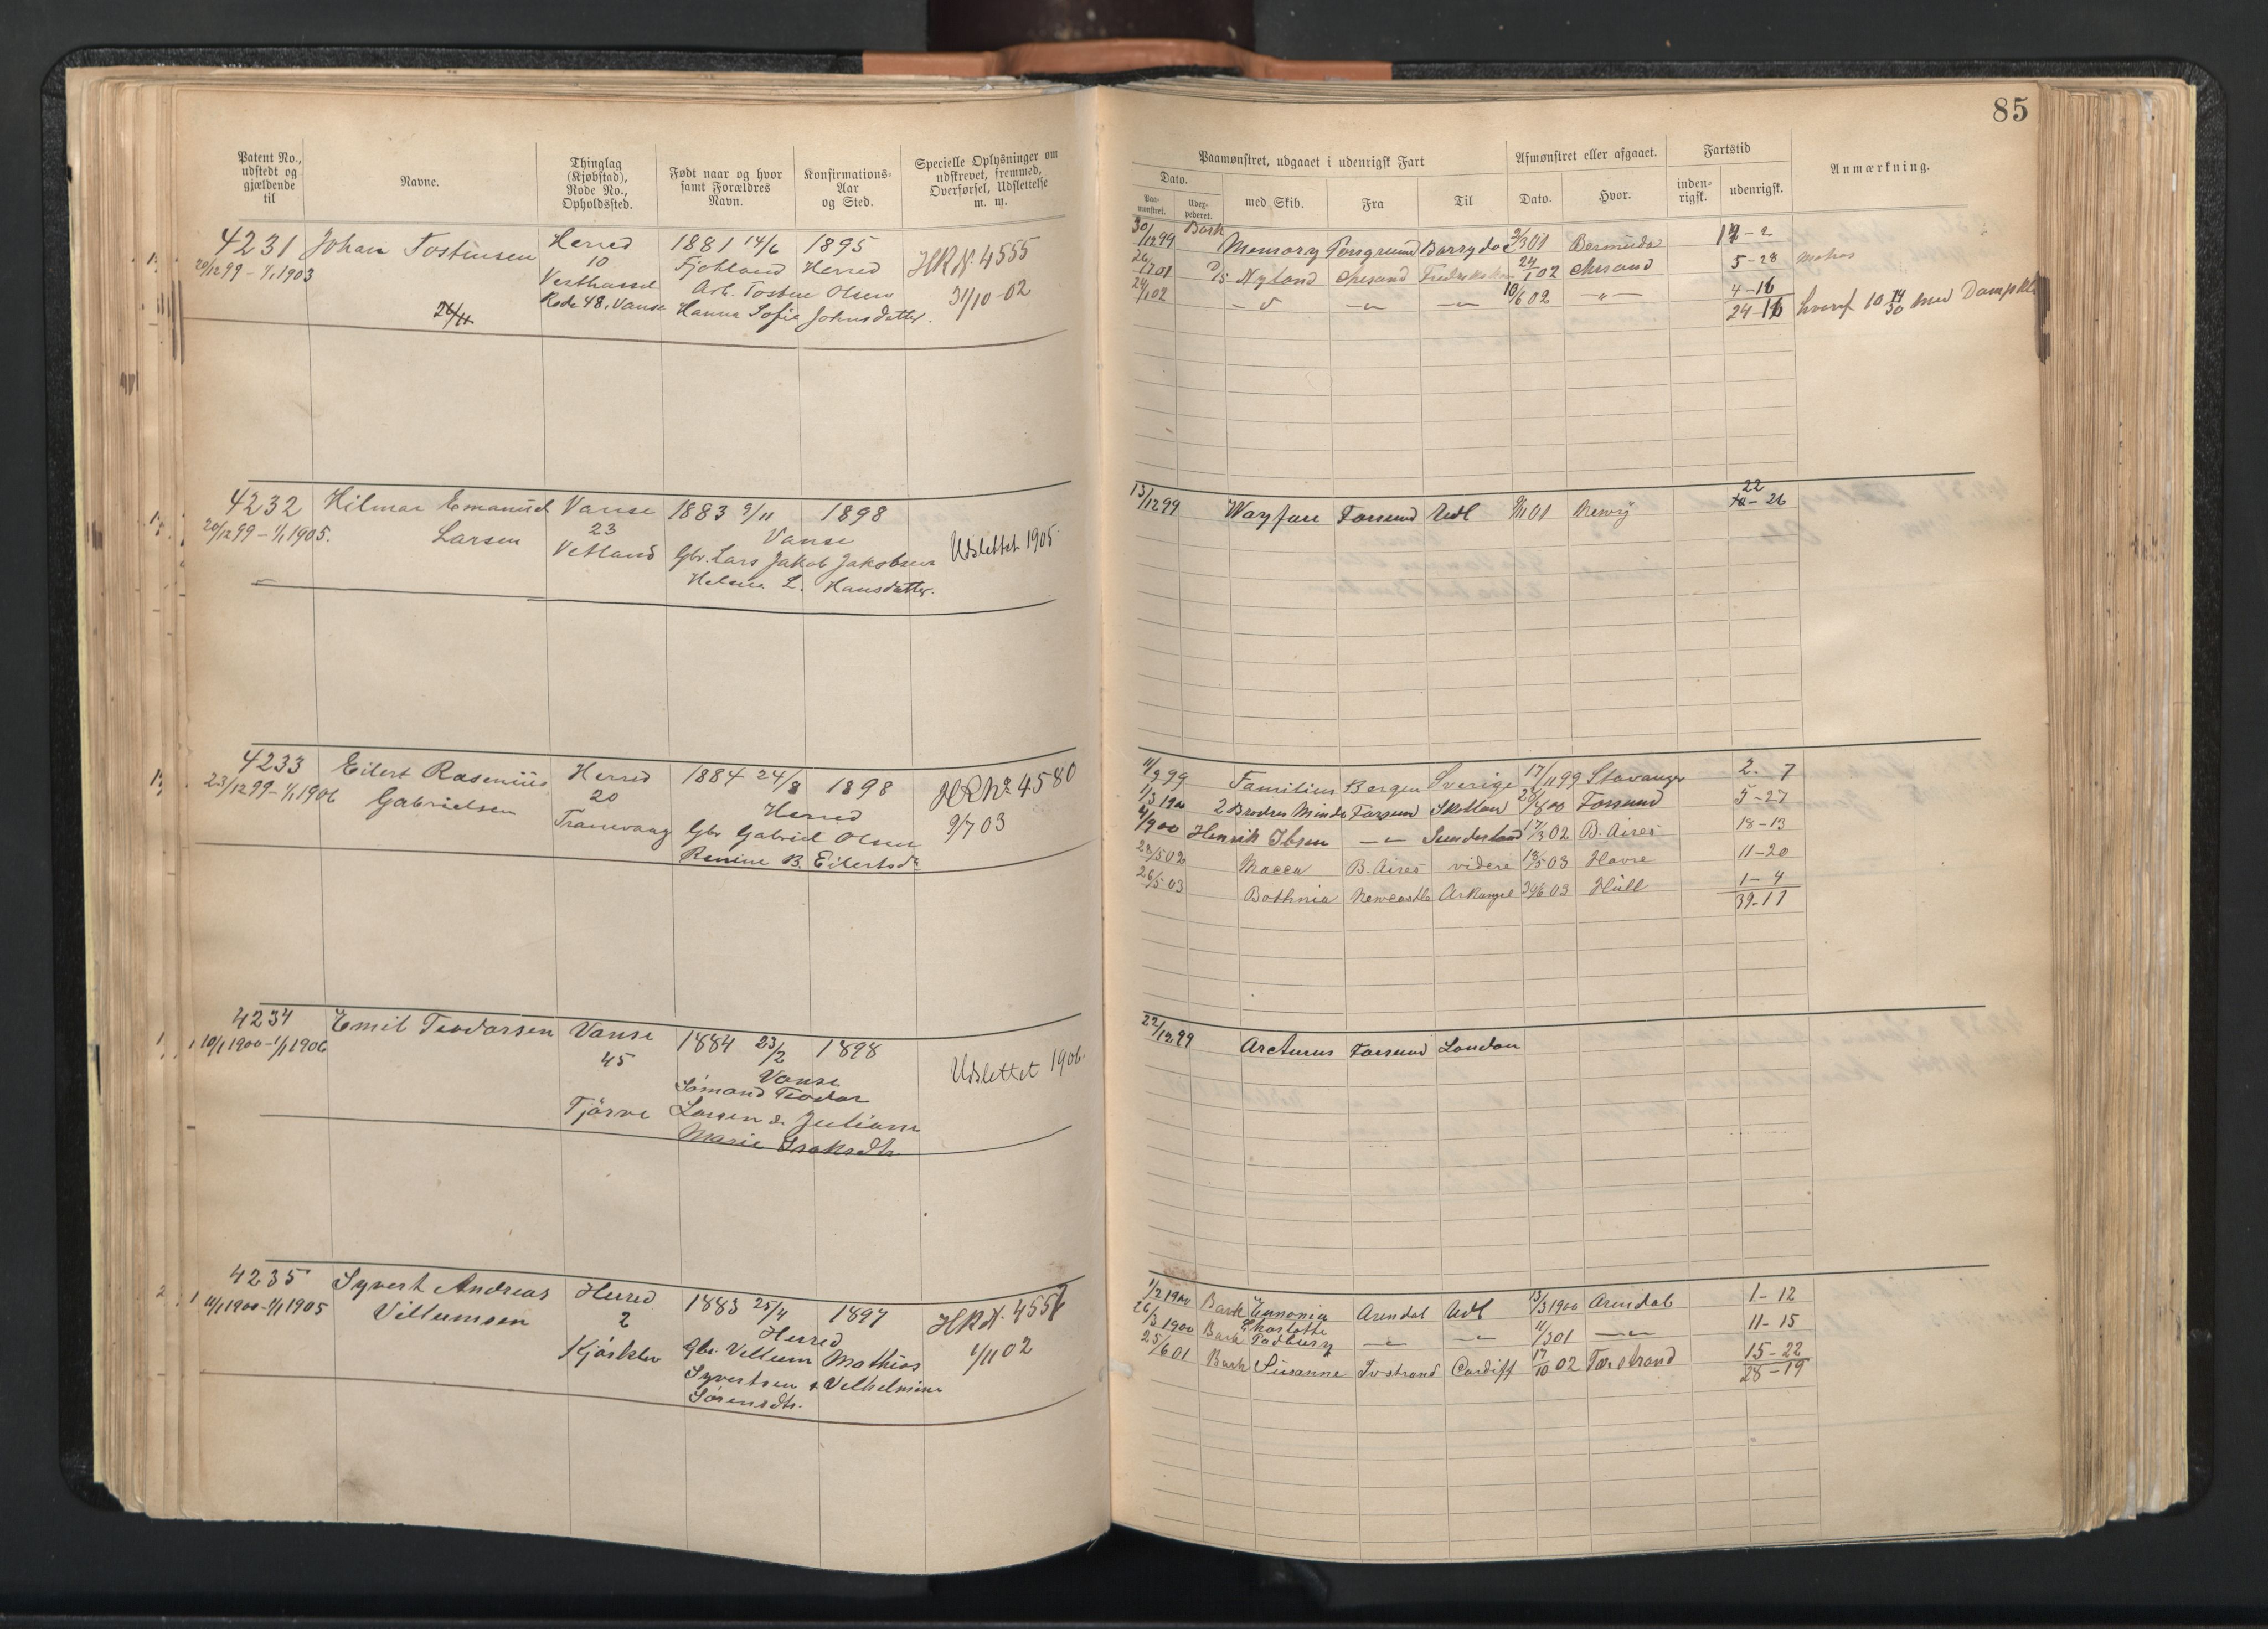 85
Patent No., udstedt og gjældende til
Navne.
Thinglag (Kjøbstad), Rode No., Opholdssted.
Født naar og hvor samt Forældres Navn.
Konfirmations-Aar og Sted.
Specielle Oplysninger om udskrevet, fremmed, Overførsel, Udslettelse m. m.
Paamønstret, udgaaet i udenrigsk Fart
Afmønstret eller afgaaet.
Fartstid
Anmærkning.
Dato.
Paa-mønstret.
Udex-pederet.
med Skib.
Fra
Til
Dato.
Hvor.
inden-rigsk.
udenrigsk.
4231 Johan Tostensen Herred 1881 14/6 1895 HR N. 4555
20/12 99 - 1/1 1903 10 Fjotland Herred
Vesthassel Arb. Tosten Olsen 31/10-02
Rode 48, Vanse Hanna Sofie Johnsdatter.
30/12 99 Bark Memory Porsgrund Barrydoc 2/3 01 Bermuda 12-2
26/7 01 D/S Nyland Chrsand 24/1 02 Chrsand 5-28
24/1 02 10/6 02 4-16
24-16
4232 Hilmar Emanuel Vanse 1883 9/11 1898
20/12 99 - 1/1 1905. Larsen 23 Vanse Udslettet 1905
Vetland Gbr. Lars Jakob Jakobsen
Helene L. Hansdatter.
13/12 99 Wayfare Farsund Udl 22
26
4233 Eilert Rosenius Herred 1884 24/8 1898 HR No 4580
23/12 99 - 1/1 1906 Gabrielsen 20 Herred 9/7 03
Tranevaag Gbr Gabriel Olsen
Renine B. Eilertsdr
11/9 99 Familien Bergen Sverige 17/11 99 Stavanger 2. 7
1/3 1900 2 Brødres Minde Farsun Skotlan 28/8 00 Farsund 5-27
4/9 00 Henrik Ibsen Sunderland 17/3 02 B. Aires 18-13
28/5 02 Macca B. Aires videre 18/5 03 Havre 11-20
26/5 03 Bothnia Newcastle Arkangel 29/6 03 Hull 1-4
39-11
4234 Emil Teodorsen Vanse 1884 23/2 1898
10/1 1900 - 1/1 1906 45 Vanse Udslettet 1906.
Sømand Teodor
Tjørve Larsen & Juliane
Marie Isaksdtr.
22/12 99 Arcturus Farsund London
4235 Syvert Andreas Herred 1883 25/4 1897 HR N. 455
11/1 1900 - 1/1 1905 Villumsen 2 Herred 1/11 02
Kjørklev Gbr. Villum Mathias
Syvertsen & Vilhelmine
Sørensdtr.
1/2 1900 Bark Ennonia Arendal Udl 13/3 1900 Arendal 1-12
26/3 1900 Bark Charlotte Padbury 11/3 01 11-15
25/6 01 Bark Susanne Tvstrand Cardiff 17/10 02 Tvestrand 15-22
28-19